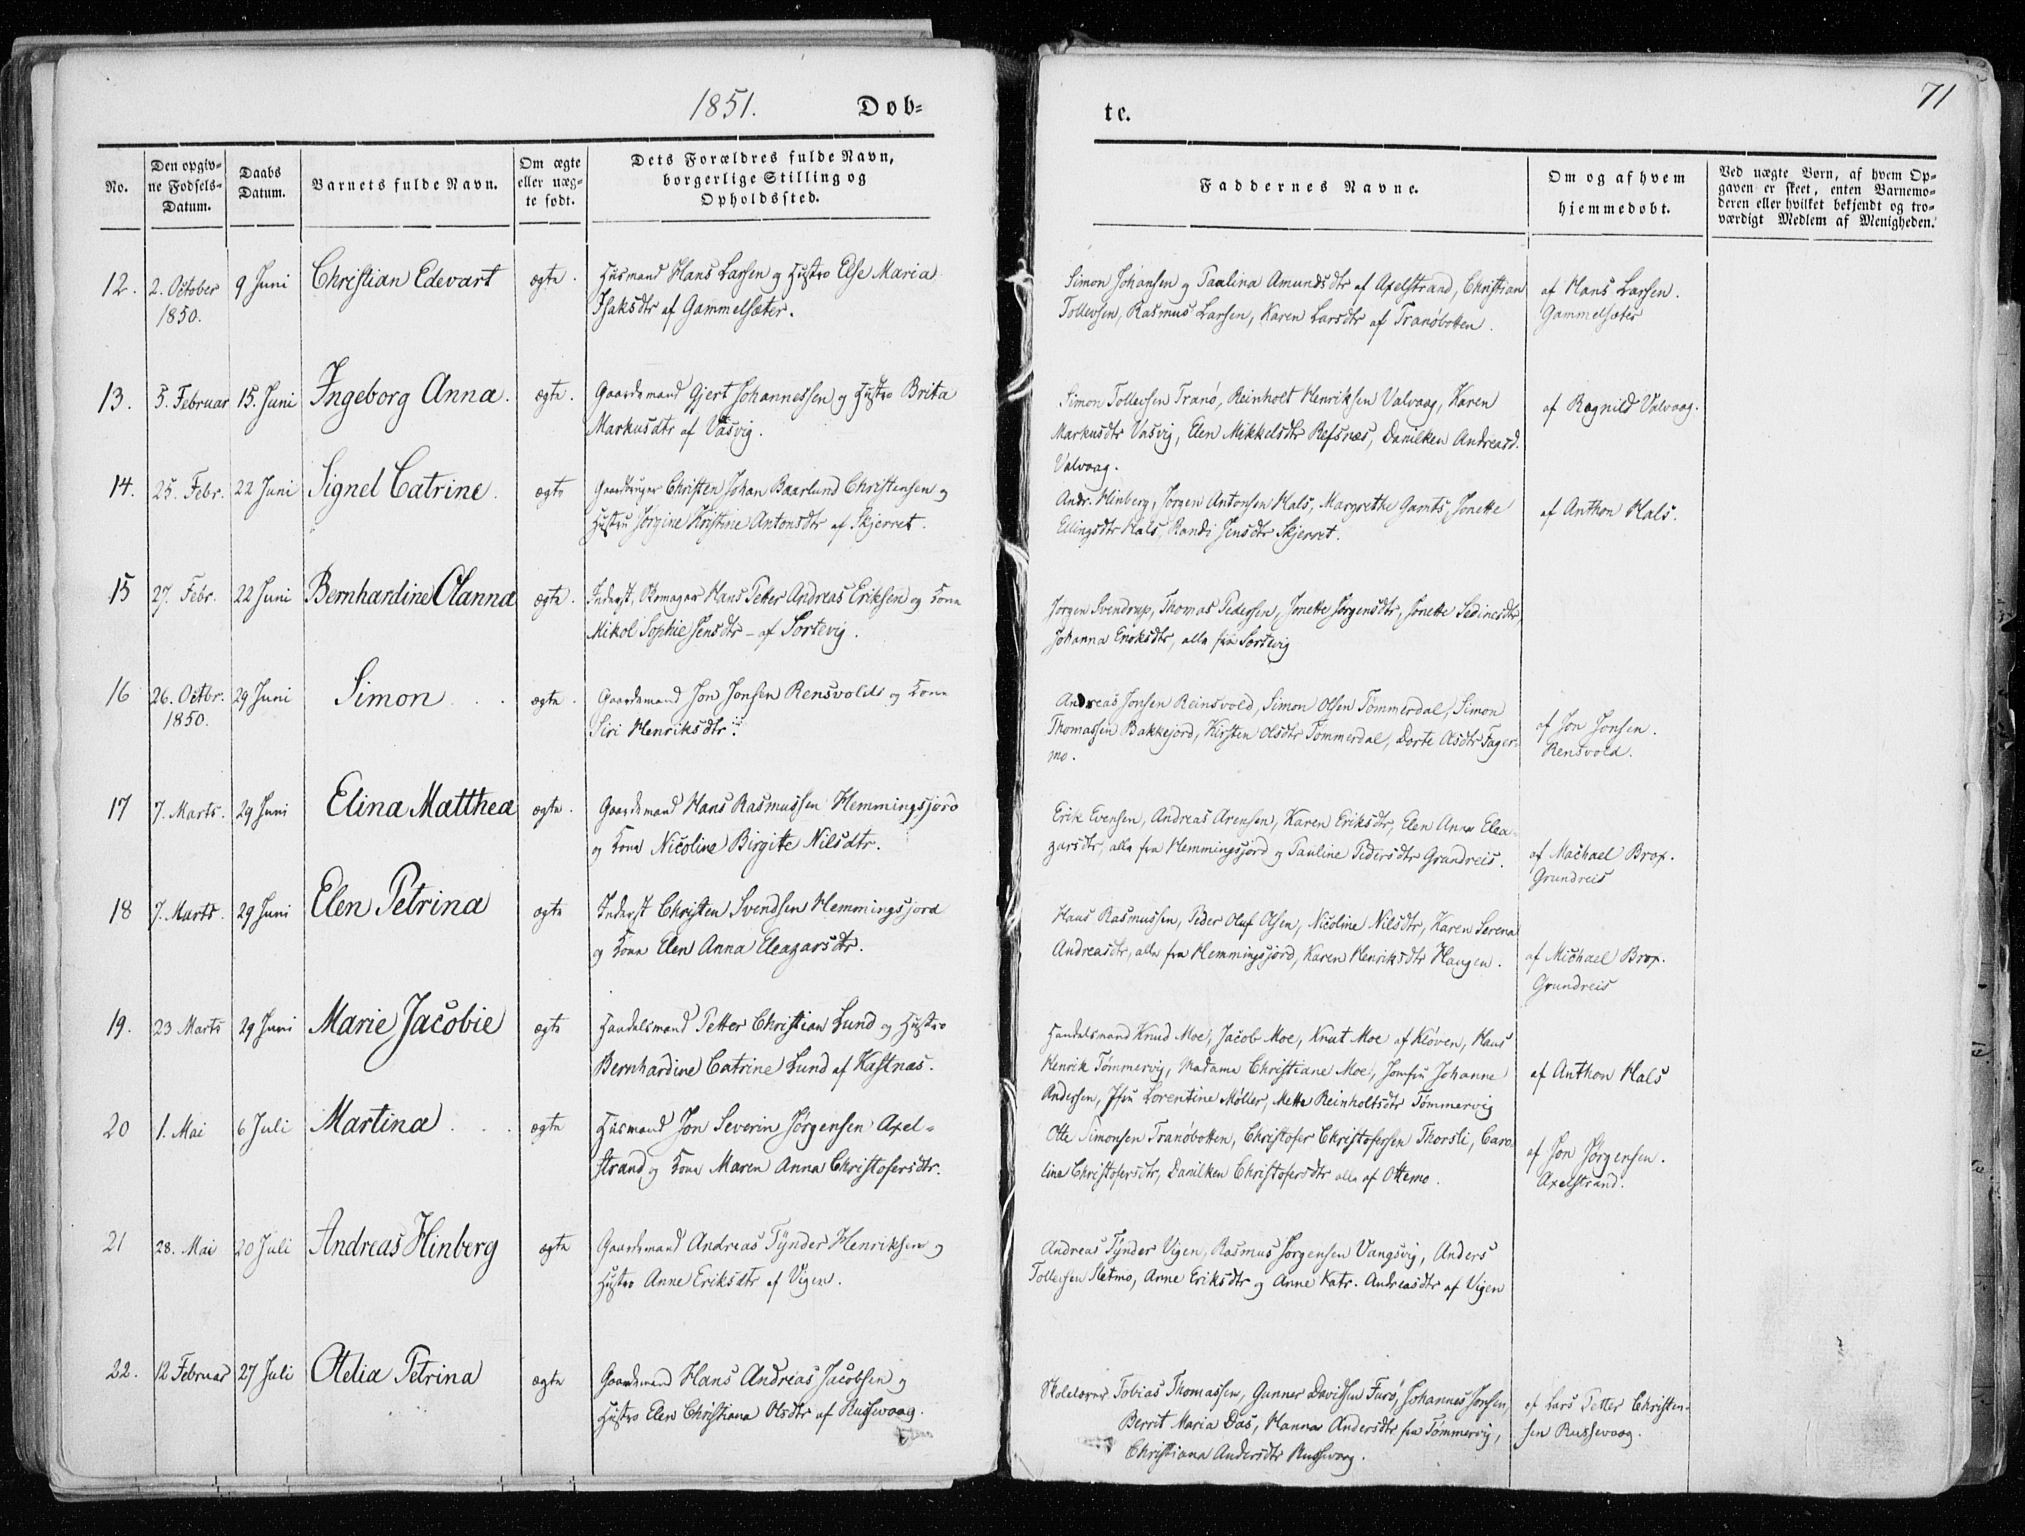 1851. Døb-
te. 71
No. Den opgiv-
ne Fødsels-
Datum. Daabs
Datum. Barnets fulde Navn. Om ægte
eller uæg-
te født. Dets Forældres fulde Navn,
borgerlige Stilling og
Opholdssted.
Faddernes Navne. Om og af hvem
hjemmedøbt. Ved uægte Børn, af hvem Op-
gaven er skeet, enten Barnemo-
deren eller hvilket bekjendt og tro-
værdigt Medlem af Menigheden.
12. 2. October 9 Juni Christian Edevart ægte. Husmand Hans Larsen og Hustro Else Maria
1850. Isaksdtr af Gammelsæter.
Simon Johansen og Paulina Amundsdtr af Axelstrand, Christian
Tollevsen, Rasmus Larsen, Karen Larsdtr af Tranøbotten.
af Hans Larsen.
Gammelsæter
13. 5. Februar 15. Juni Ingeborg Anna. ægte. Gaardmand Gjert Johannessen og Hustro Brita
Markusdtr af Vasvig.
Simon Tollevsen Tranø, Reinholt Henriksen Valvaag, Karen
Markusdtr Vasvig, Elen Mikkelsdtr Refsnæs, Danilken Andreasd.
Valvaag.
af Ragnild Valvaag.
14. 25. Febr. 22 Juni Signel Catrine. ægte Gaardbruger Christen Johan Baarlund Christensen og
Hustru Jørgine Kristine Antonsdtr af Skjerret.
Andr. Hinberg, Jørgen Antonsen Hals, Margrethe Gamts, Jonette
Ellingsdtr Hals, Randi Jensdtr Skjerret.
af Anthon Hals.
15 27. Febr. 22 Juni Bernhardine Olanna ægte. Inderst, Skomager Hans Petter Andreas Eriksen og Kone
Mikol Sophie Jensdtr - af Sortevig.
Jørgen Svendrup, Thomas Pedersen, Jonette Jørgensdtr, Jonette Sedinesdtr,
Johanna Enoksdtr, alle fra Sortevig
16 26. Octbr. 29 Juni Simon ægte. Gaardmand Jon Jonsen Rensvolds og Kone
1850. Siri Henriksdtr.
Andreas Jonsen Reinsvold, Simon Olsen Tømmerdal, Simon
Thomassen Bakkejord, Kirsten Olsdtr Tømmerdal, Dorte Olsdtr Fager-
mo.
af Jon Jonsen.
Rensvold.
17 7. Marts. 29 Juni Elina Matthea ægte. Gaardmand Hans Rasmussen Hemmingsjord
og Kone Nicoline Birgite Nilsdtr.
Erik Evensen, Andreas Arensen, Karen Eriksdtr, Elen Anna Elea-
zarsdtr, alle fra Hemmingsjord og Pauline Pedersdtr Grundreis.
af Machael Brox.
Grundreis
18 7. Marts. 29 Juni Elen Petrina ægte Inderst Christen Svendsen Hemmingsjord
og Kone Elen Anna Eleazarsdtr.
Hans Rasmussen, Peder Oluf Olsen, Nicoline Nilsdtr, Karen Serena
Andreasdtr, alle fra Hemmingsjord, Karen Henriksdtr Haugen.
af Michael Brox.
Grundreis
19. 23 Marts 29 Juni Marie Jacobie ægte Handelsmand Petter Christian Lund og Hustro
Bernhardine Catrine Lund af Kastnæs.
Handelsmand Knud Moe, Jacob Moe, Knut Moe af Kløven, Hans
Henrik Tømmervig, Madame Christiane Moe, Jomfru Johanne
Andersen, Jfru Lorentine Møller, Mette Reinholtsdtr Tømmervig
af Anthon Hals
20 1. Mai 6 Juli Martina ægte Husmand Jon Severin Jørgensen Axel-
strand og Kone Maren Anna Christofersdtr.
Otte Simonsen Tranøbotten, Christofer Christofersen Thorsli, Caro-
line Christofersdtr, Danilken Christofersdtr alle af Ottemo.
af Jon Jørgensen.
Axelstrand.
21 28. Mai 20 Juli Andreas Hinberg ægte Gaardmand Andreas Tÿnder Henriksen og
Hustro Anne Eriksdtr af Vigen.
Andreas Tÿnder Vigen, Rasmus Jørgensen Vangsvig, Anders
Tollevsen Sletmo, Anne Eriksdtr og Anne Katr. Andreasdtr af Vigen
22. 12 Februar 27 Juli Otelia Petrina ægte Gaardmand Hans Andreas Jacobsen og
Hustro Elen Christiana Olsdtr af Russevaag.
Skolelærer Tobias Thomassen, Gunner Davidsen Furø, Johannes Jonsen,
Berrit Maria Das, Hanna Andersdtr fra Tømmervig,
Christiana Andersdtr Russevaag.
af Lars Petter Christen-
sen Russevaag.